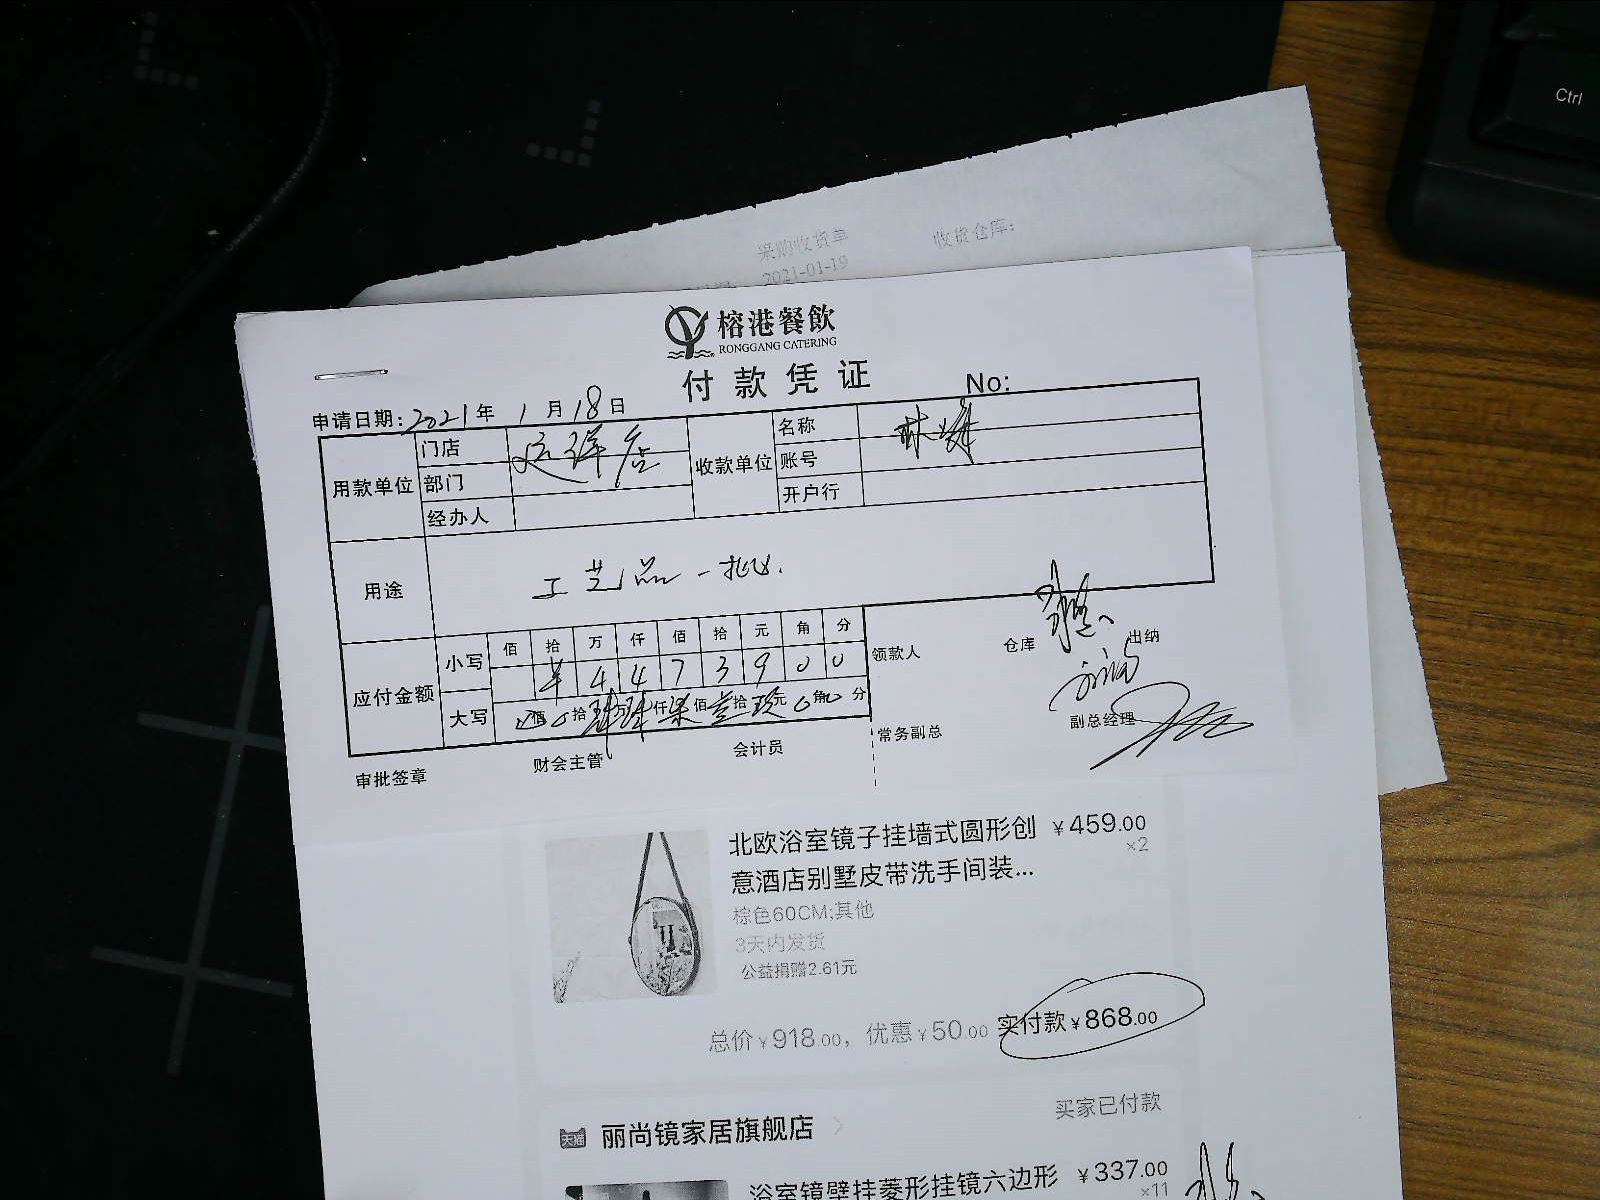 Ctrl
采购收货单
收货仓库:
2021-01-19
榕港餐飲
RONGGANG CATERING
付款凭证
No:
申请日期: 2021 年 1 月 18 日
用款单位
门店
部门
经办人
收款单位
名称
账号
开户行
用途
工艺品一批.
应付金额
小写
佰 拾 万 仟 佰 拾 元 角 分
¥ 4 4 7 3 9 0 0
大写
佰 拾 万 仟 佰 拾 元 角 分
领款人
仓库
出纳
常务副总
副总经理
审批签章
财会主管
会计员
北欧浴室镜子挂墙式圆形创 ¥459.00
意酒店别墅皮带洗手间装... ×2
棕色60CM;其他
3天内发货
公益捐赠2.61元
总价¥918.00, 优惠¥50.00 实付款¥868.00
买家已付款
天猫 丽尚镜家居旗舰店 >
浴室镜壁挂菱形挂镜六边形 ¥337.00
×11